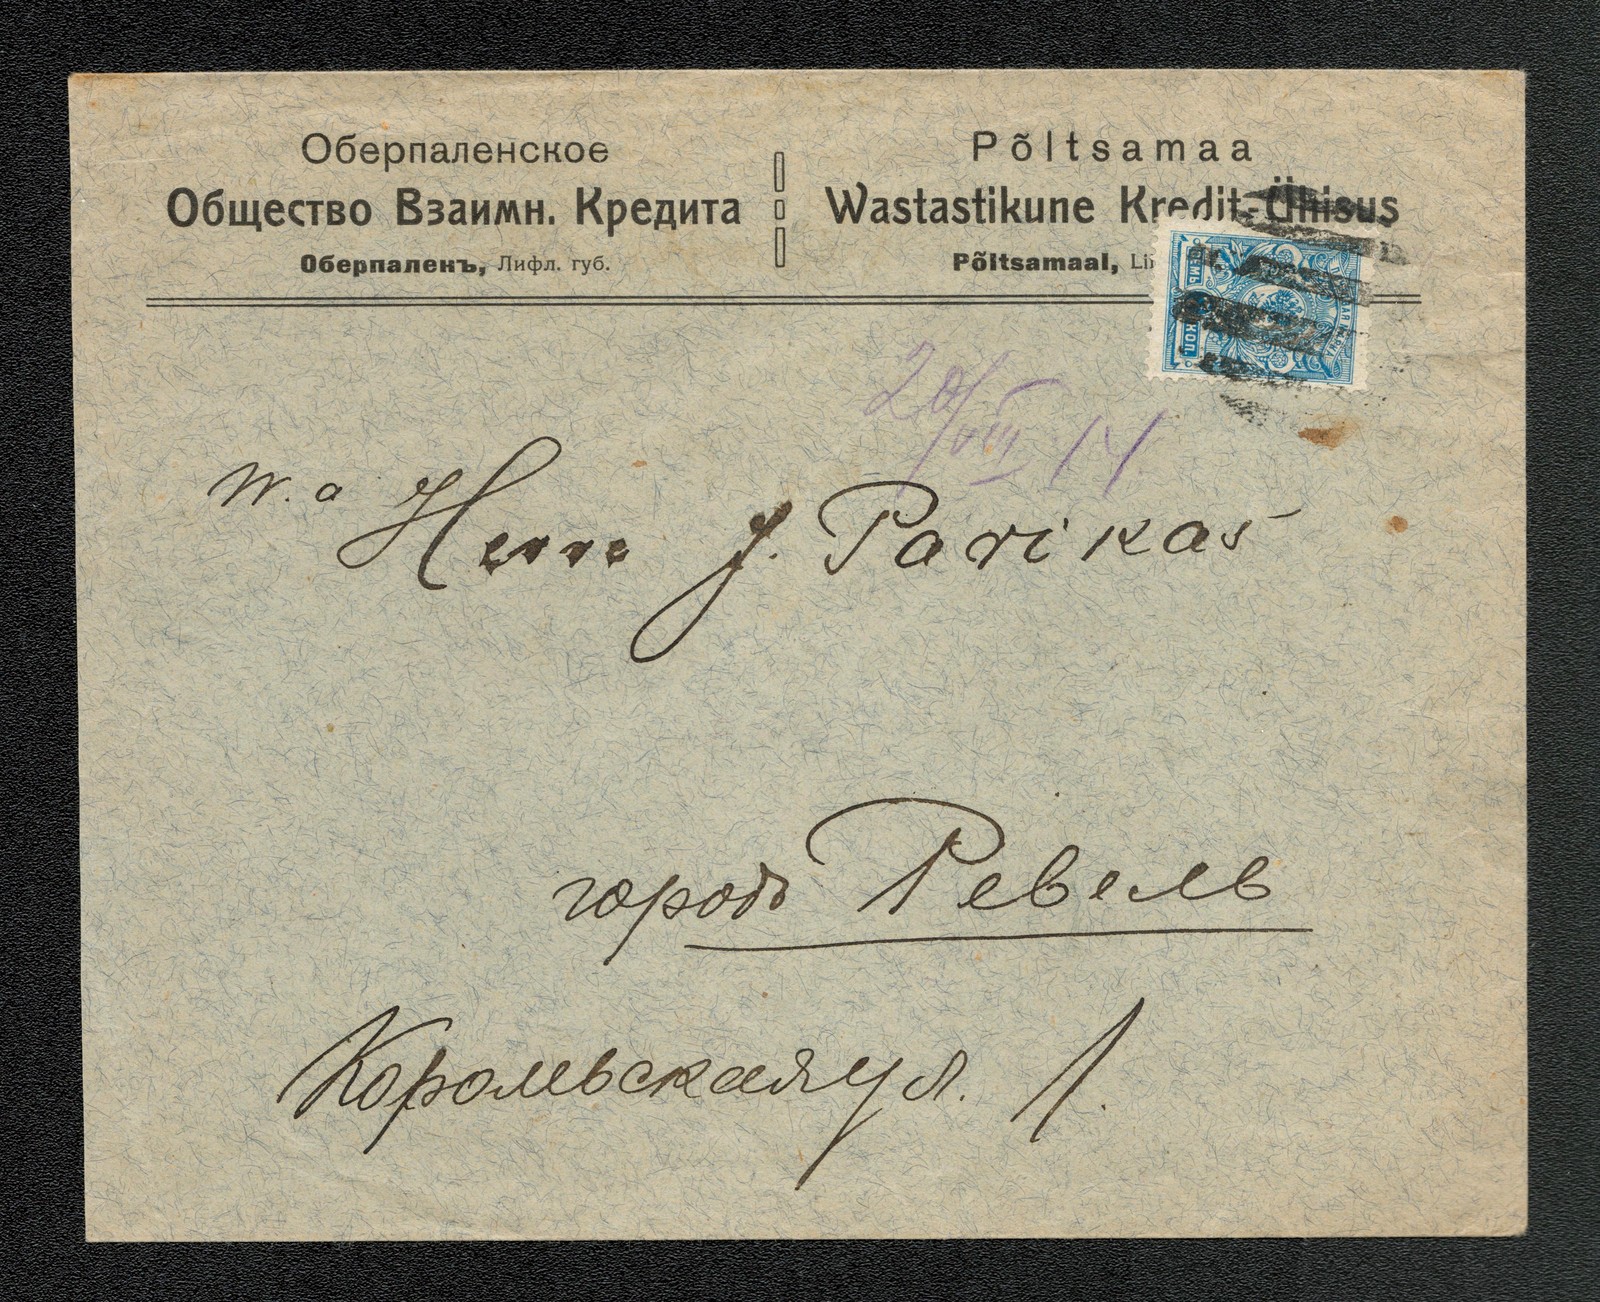 Оберпаленское
Общество Взаимн. Кредита
Оберпаленъ, Лифл. губ.
Põltsamaa
Wastastikune Kredit-Ühisus
Põltsamaal,
СЕМЬ
КОП.
20/VIII 14
W. a Herrn J. Parikas
городъ Ревель
Корольская ул. 1.